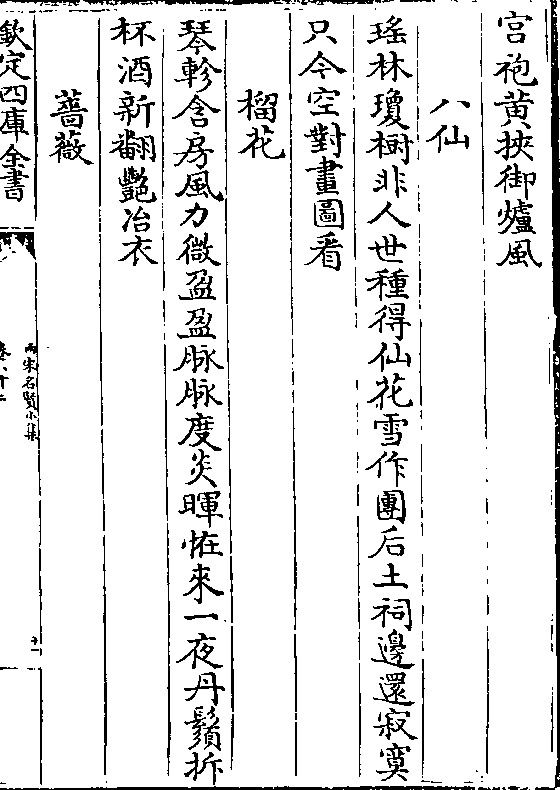 宫袍黄挾御爐風
八仙
瑤林瓊樹非人世種得仙花雪作團后土祠邊還寂寞
只今空對畫圖看
榴花
琴軫含房風力微盈盈脉脉度炎暉恠來一夜丹鬚拆
杯酒新翻艷冶衣
薔薇
欽定四庫全書
兩宋名賢小集